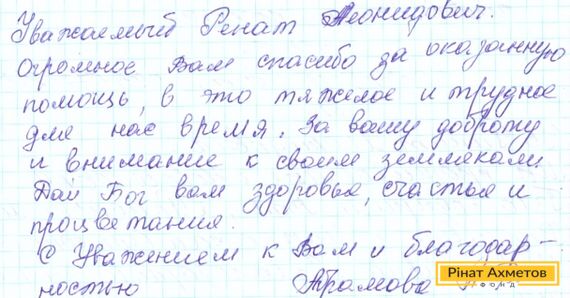 Уважаемый Ренат Леонидович.
Огромное Вам спасибо за оказанную
помощь, в это тяжелое и трудное
для нас время. За вашу доброту
и внимание к своим землякам.
Дай Бог вам здоровья, счастья и
процветания.
С Уважением к Вам и благодар-
ностью Абрамова
Рінат Ахметов
ФОНД